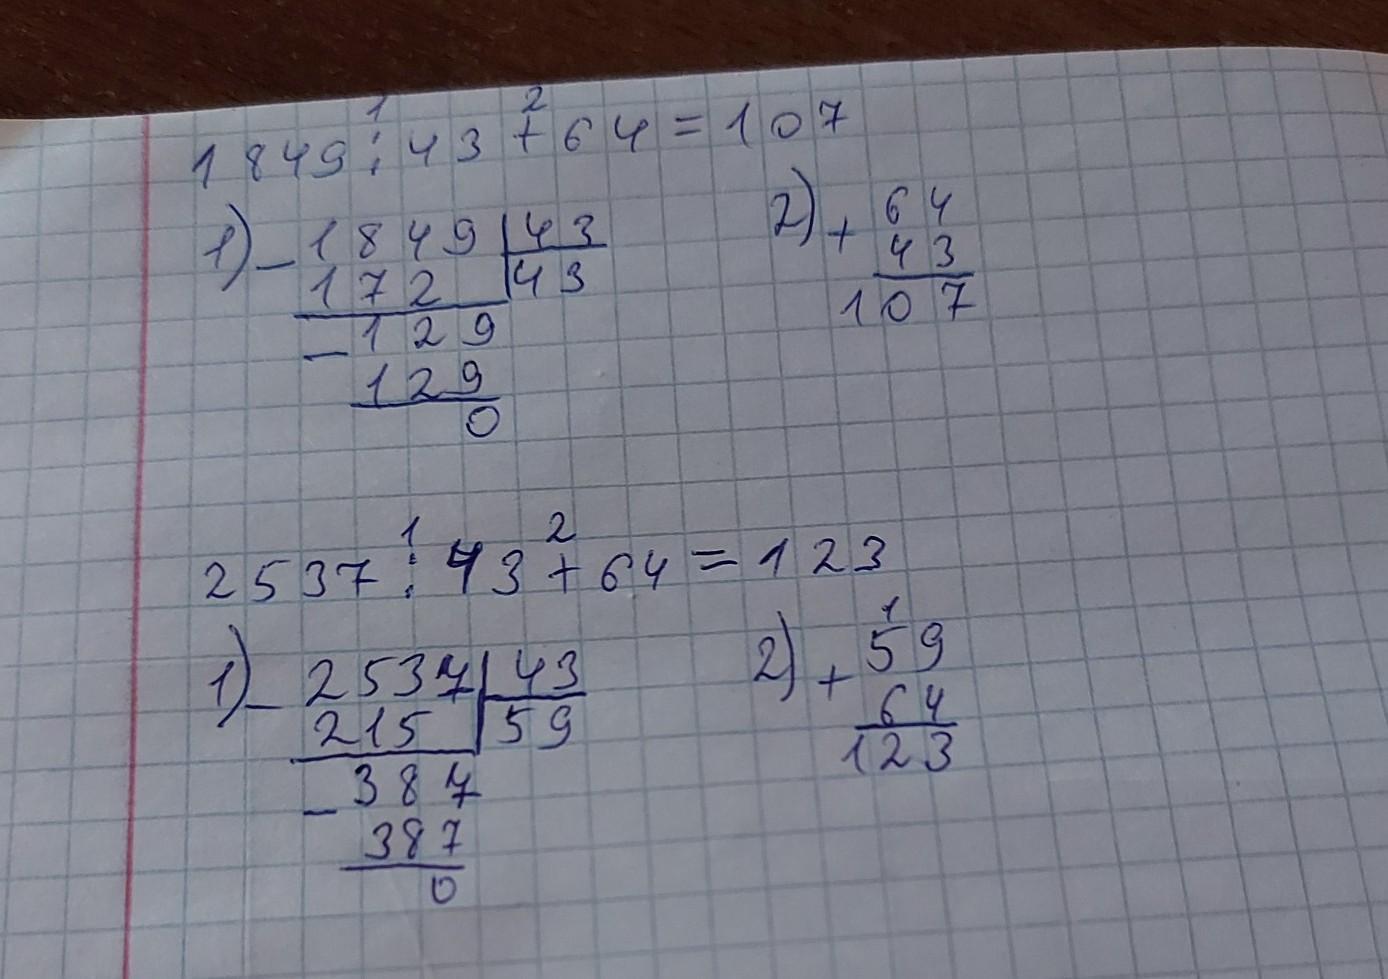 1 2
1849 : 43 + 64 = 107
1) - 1849 | 43
172 | 43
- 129
129
0
2) + 64
43
107
1 2
2537 : 43 + 64 = 123
1) - 2537 | 43
215 | 59
- 387
387
0
1
2) + 59
64
123